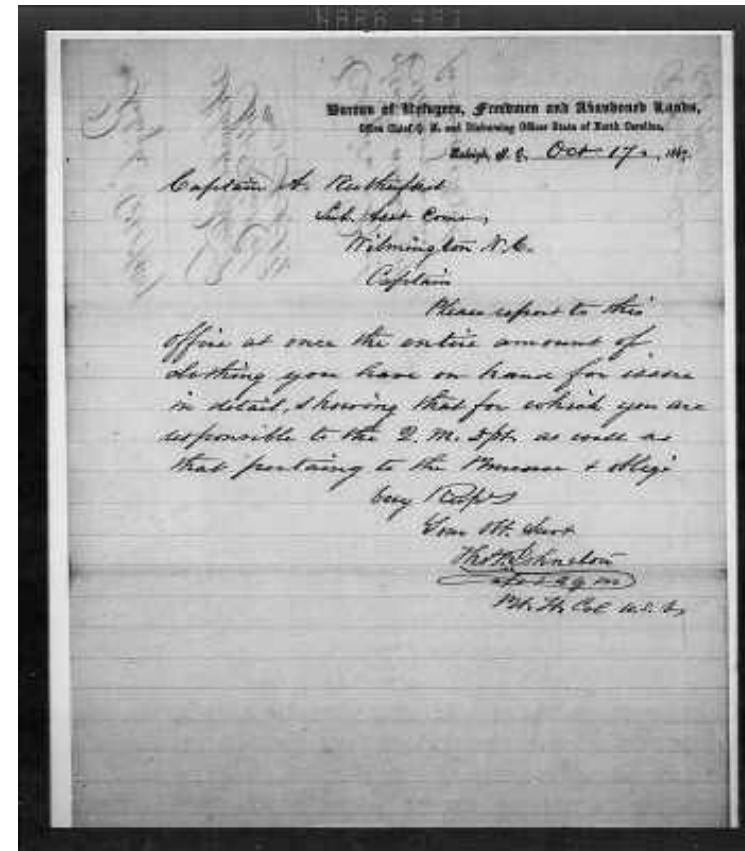 Bureau of Refugees, Freedmen and Abandoned Lands,
Office Chief Q. M. and Disbursing Officer State of North Carolina,
Raleigh, N. C. Oct 17, 1867.
Captain A. Rutherford
Sub. Asst Comr,
Wilmington N.C.
Captain
Please report to this
office at once the entire amount of
clothing you have on hand for issue
in detail, showing that for which you are
responsible to the Q. M. Dpt. as well as
that pertaing to the Bureau & oblige
Very Resp
Your Obt. Servt
Johnston
Capt & A Q M
Bt. Lt. Col U.S.A.